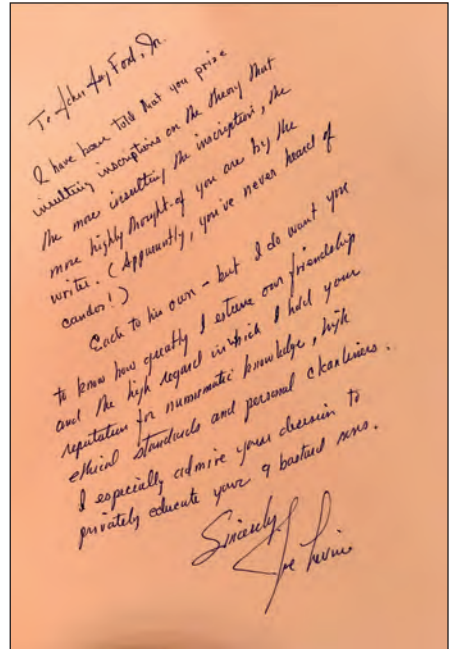 To John Jay Ford, Jr.
I have been told that you prize
insulting inscriptions on the theory that
the more insulting the inscription, the
more highly thought of you are by the
writer. (Apparently, you've never heard of
candor!)
Each to his own – but I do want you
to know how greatly I esteem our friendship
and the high regard in which I hold your
reputation for numismatic knowledge, high
ethical standards and personal cleanliness.
I especially admire your decision to
privately educate your 9 bastard sons.
Sincerely
Joe Levine